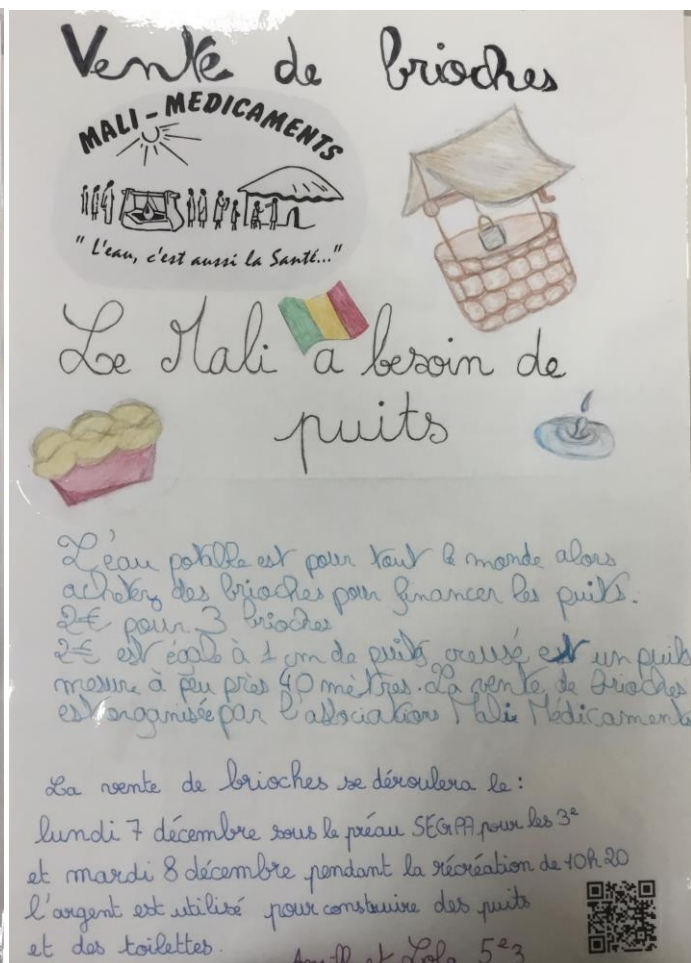 Vente de brioches
MALI - MEDICAMENTS
" L'eau, c'est aussi la Santé..."
Le Mali a besoin de
puits
L'eau potable est pour tout le monde alors
achetez des brioches pour financer les puits.
2€ pour 3 brioches
2€ est égale à 1 cm de puits creusé est un puits
mesure à peu près 40 mètres. La vente de brioches
est organisée par l'association Mali Médicament
La vente de brioches se déroulera le :
lundi 7 décembre sous le préau SEGPA pour les 3e
et mardi 8 décembre pendant la récréation de 10h20
l'argent est utilisé pour construire des puits
et des toilettes.
et Lola 5e3